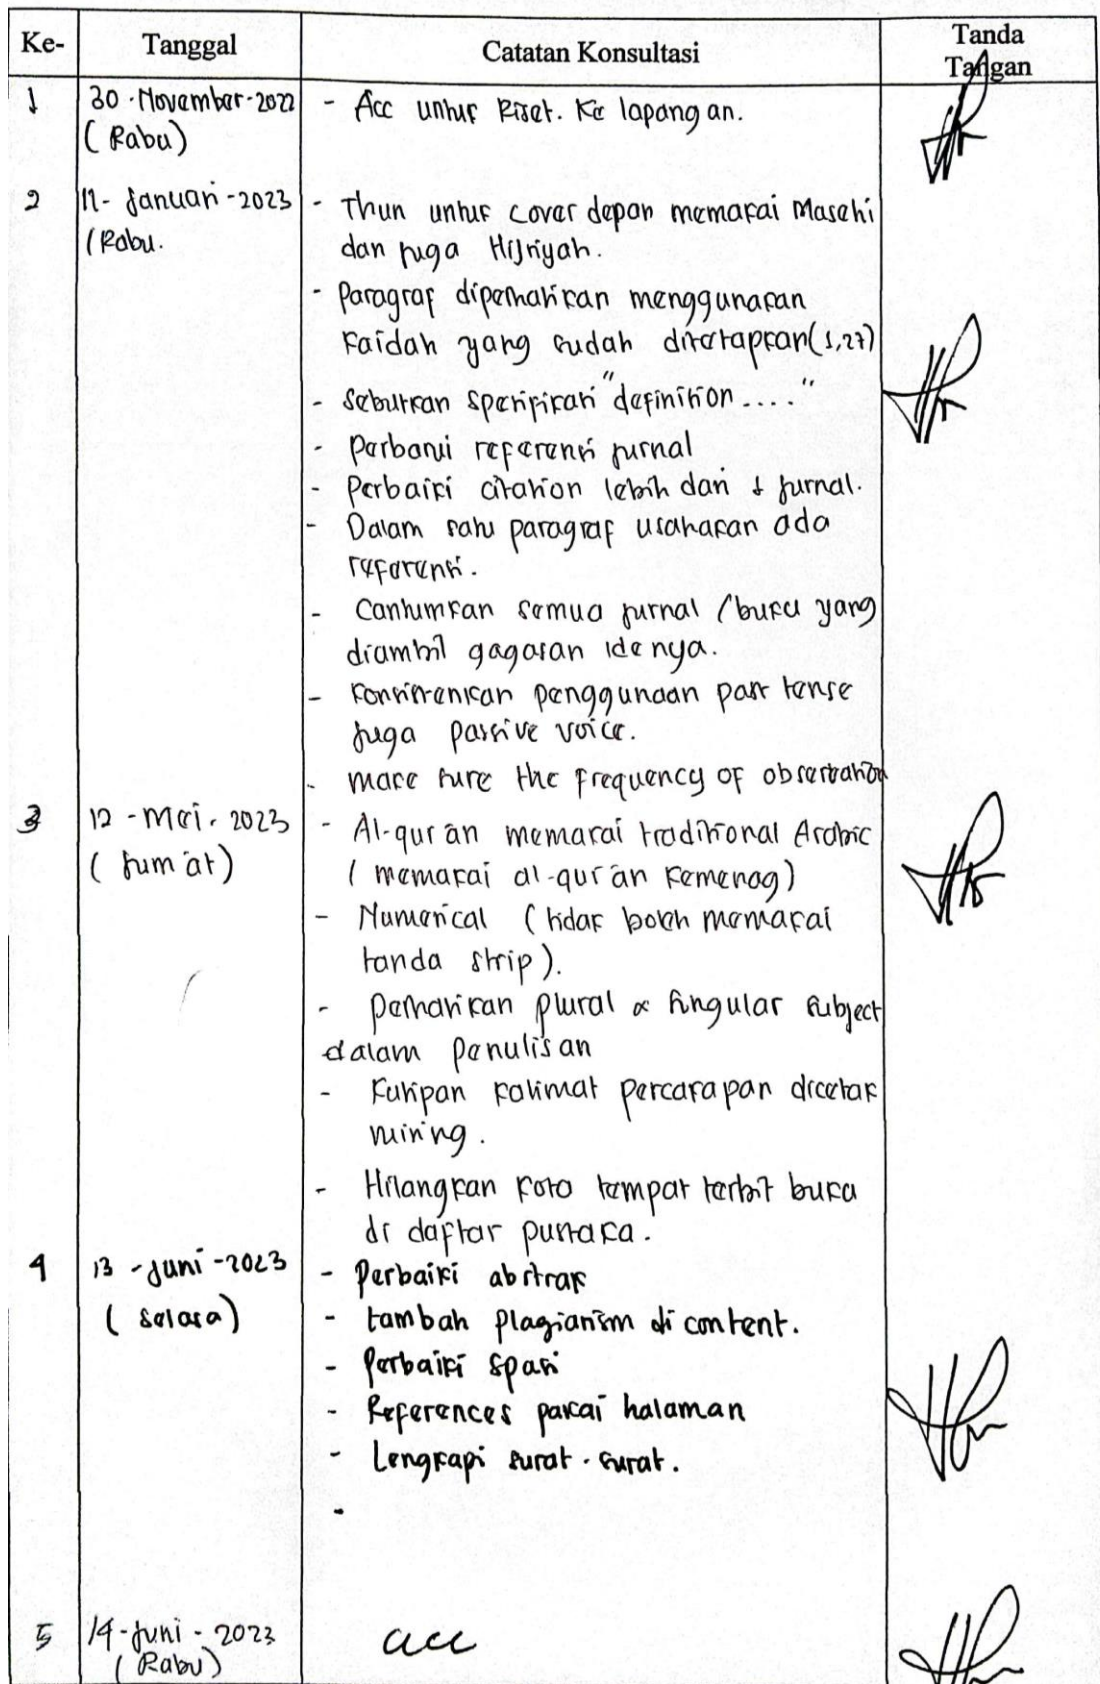 Ke-
Tanggal
Catatan Konsultasi
Tanda
Tangan
1
30 - November - 2022
(Rabu)
- Acc untuk Riset. Ke lapangan.
2
11 - Januari - 2023
(Rabu.
- Thun untuk cover depan memakai Masehi
dan juga Hijriyah.
- Paragraf diperhatikan menggunakan
kaidah yang sudah ditetapkan (1,27)
- Sebutkan spesifikasi "definition ...."
- Perbarui referensi jurnal
- Perbaiki citation lebih dari 1 jurnal.
- Dalam satu paragraf usahakan ada
referensi.
- Cantumkan semua jurnal / buku yang
diambil gagasan idenya.
- Konsistenkan penggunaan past tense
juga passive voice.
- make sure the frequency of observation
3
12 - Mei - 2023
(Jum'at)
- Al-qur'an memakai traditional Arabic
(memakai al-qur'an kemenag)
- Numerical (tidak boleh memakai
tanda strip).
- Perhatikan plural & singular subject
dalam penulisan
- Kutipan kalimat percakapan dicetak
miring.
- Hilangkan kota tempat terbit buku
di daftar pustaka.
4
13 - Juni - 2023
(Selasa)
- Perbaiki abstrak
- tambah plagiarism di content.
- Perbaiki spasi
- References pakai halaman
- Lengkapi surat-surat.
-
5
14 - Juni - 2023
(Rabu)
acc